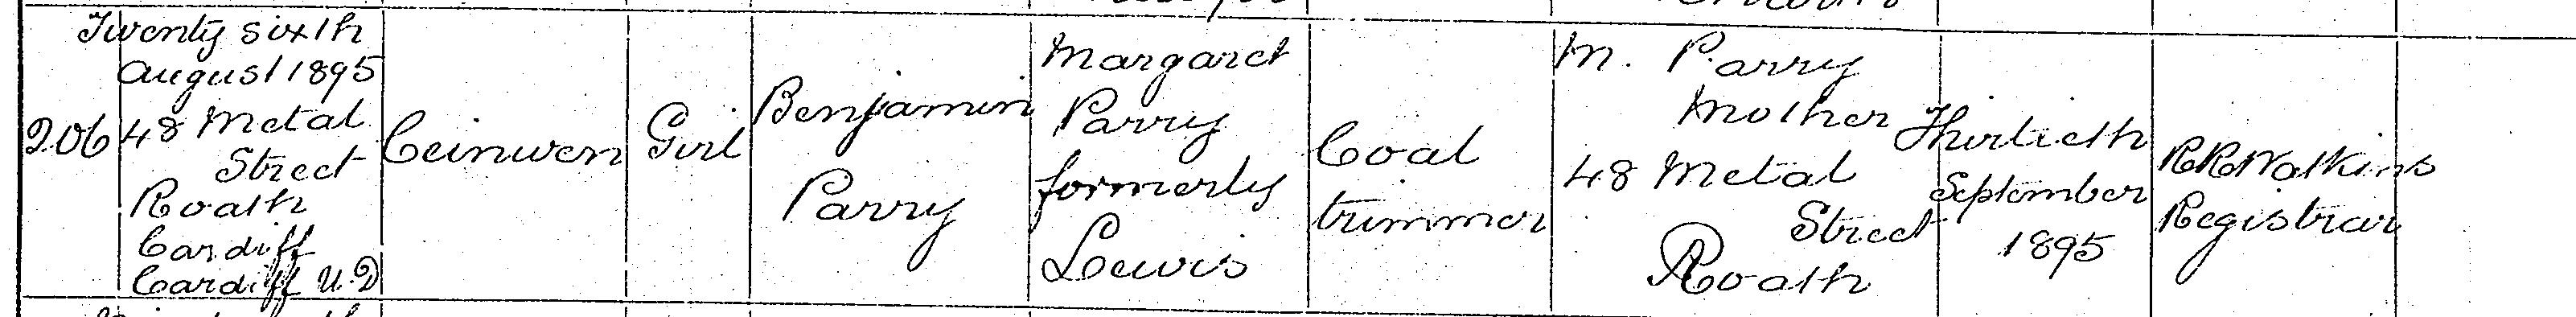 206
Twenty sixth
August 1895
48 Metal
Street
Roath
Cardiff
Cardiff U.D
Ceinwen
Girl
Benjamin
Parry
Margaret
Parry
formerly
Lewis
Coal
trimmer
M. Parry
Mother
48 Metal
Street
Roath
Thirtieth
September
1895
Registrar